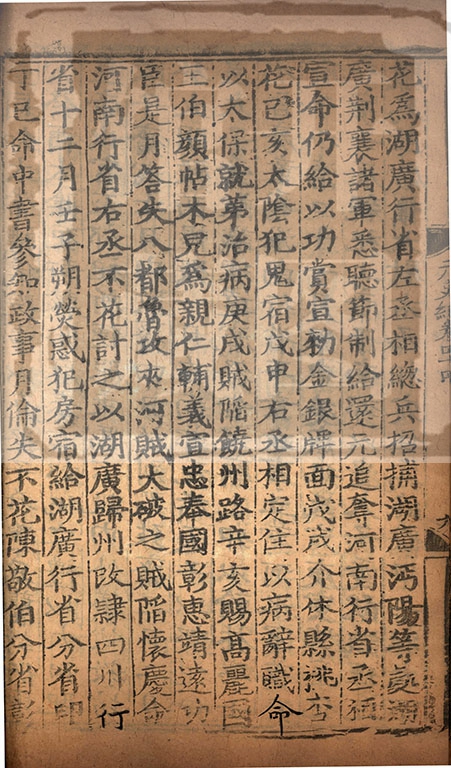 花為湖廣行省左丞相緫兵招捕湖廣沔陽等處湖
廣荆襄諸軍悉聽節制給還元追奪河南行省丞相
宣命仍給以功賞宣勑金銀牌面戊戌介休縣桃杏
花己亥太陰犯鬼宿戊申右丞相定住以病辭職命
以太保就第治病庚戌賊陷饒州路辛亥賜高麗國
王伯顏帖木兒為親仁輔義宣忠奉國彰惠靖遠功
臣是月荅失八都魯攻夾河賊大破之賊陷懷慶命
河南行省右丞不花討之以湖廣歸州改隷四川行
省十二月壬子朔熒惑犯房宿給湖廣行省分省印
丁巳命中書參知政事月倫失不花陳敬伯分省彰